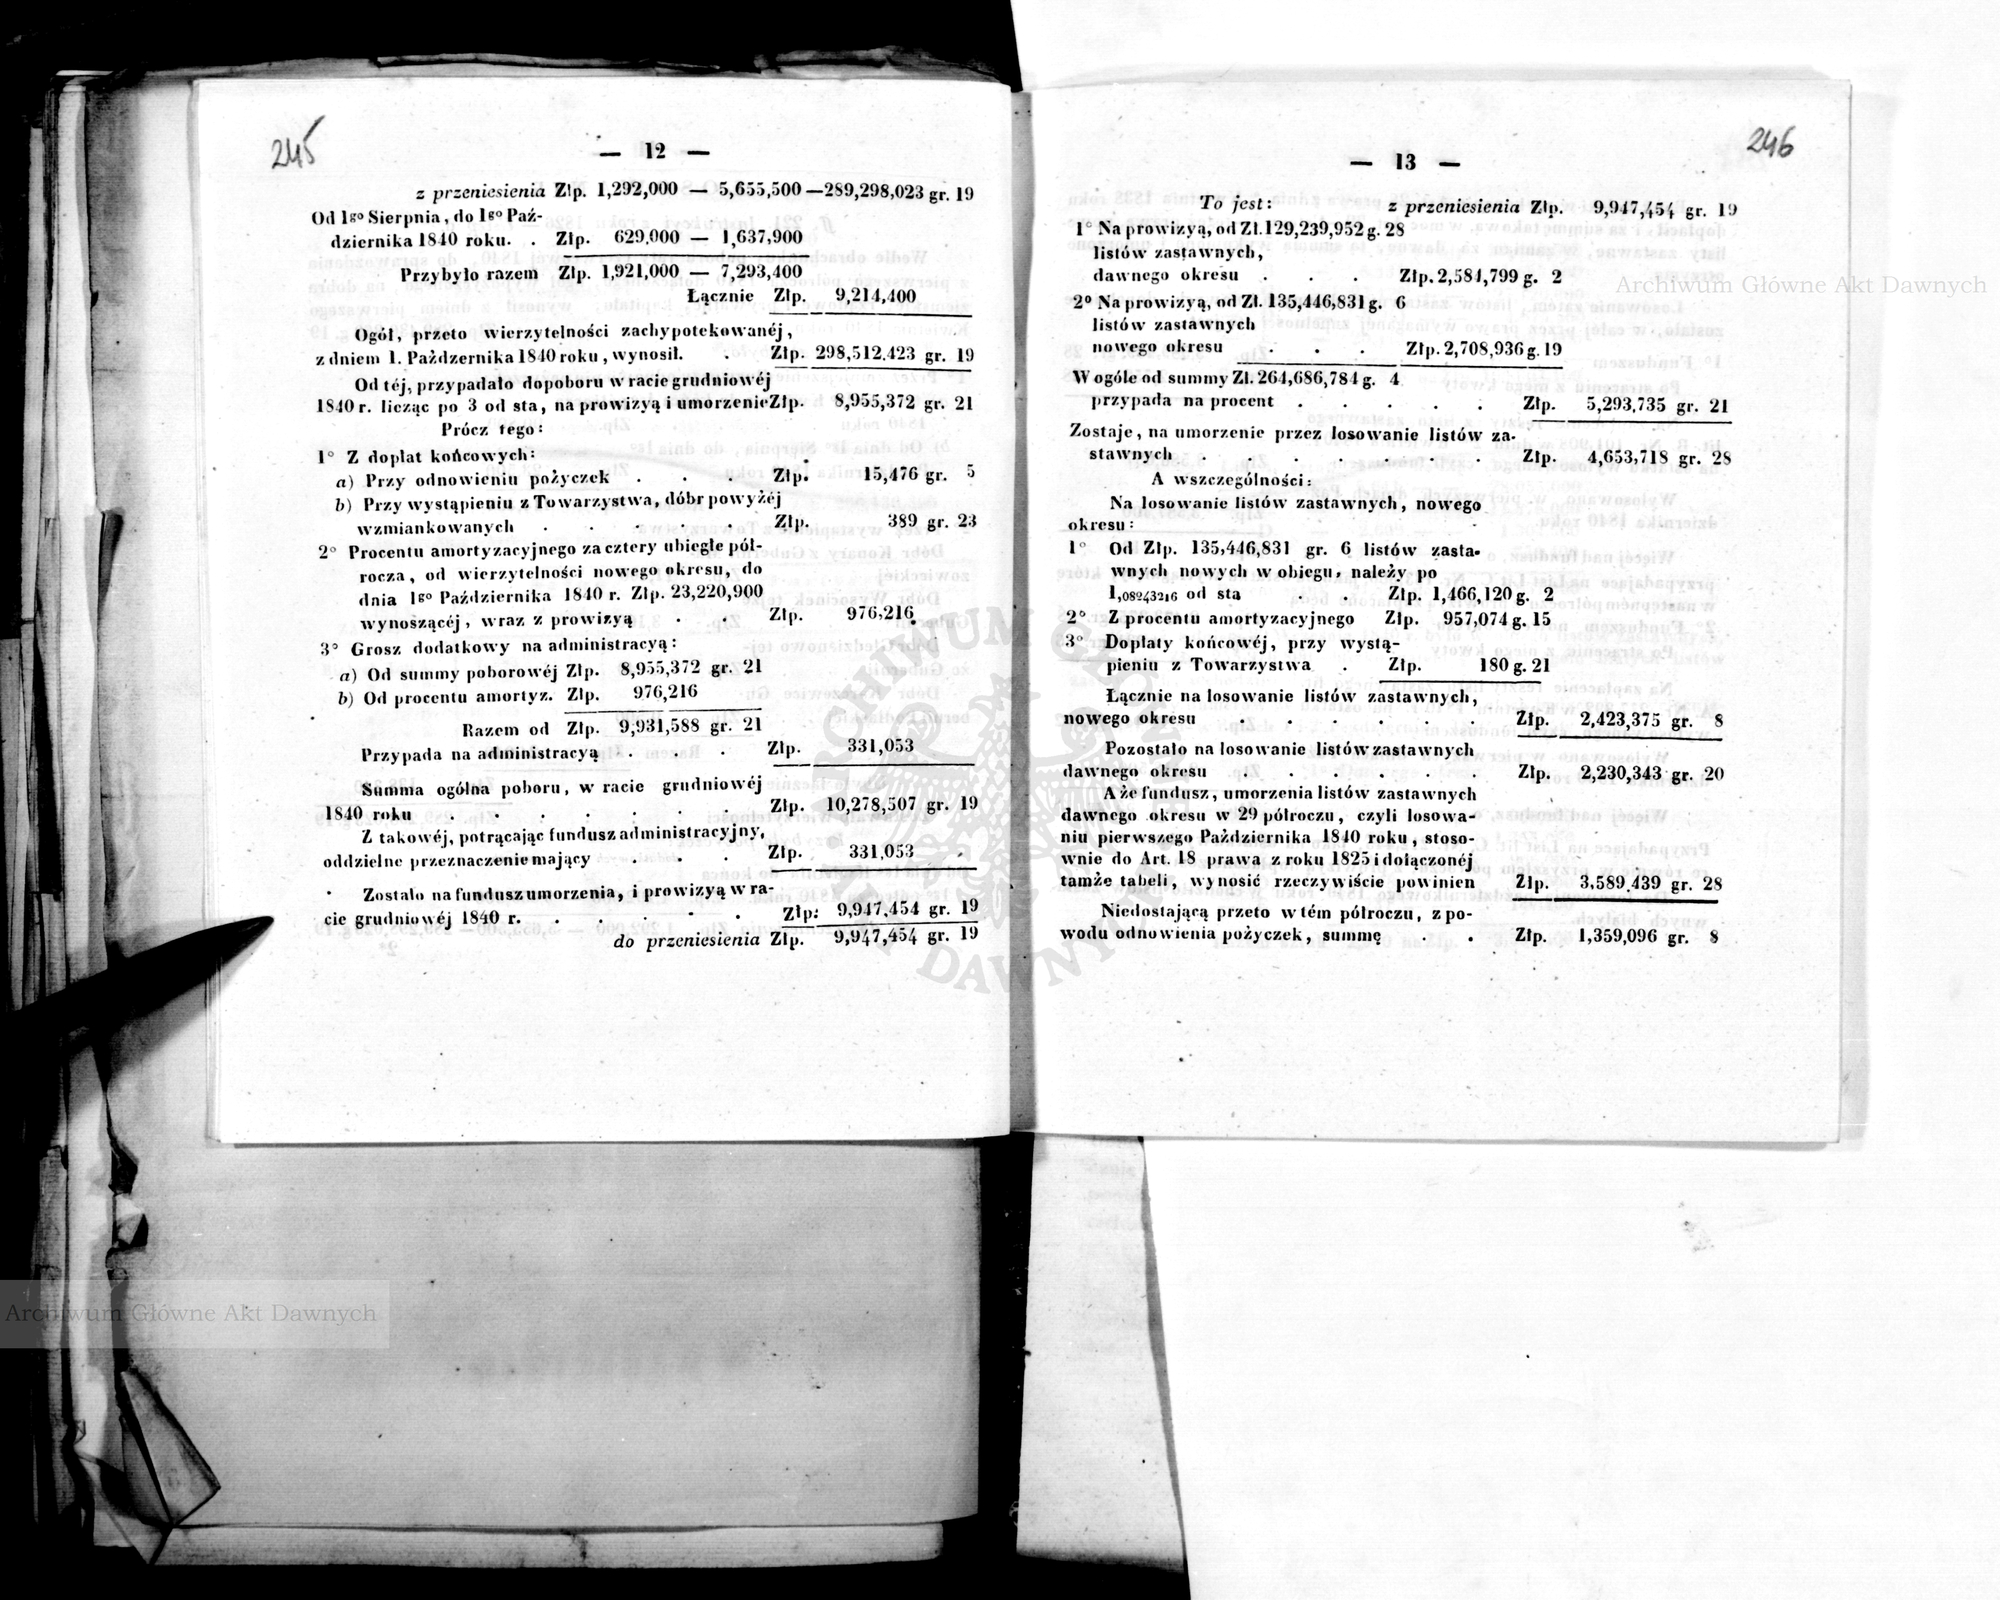 245
— 12 —
z przeniesienia Złp. 1,292,000 — 5,655,500 — 289,298,023 gr. 19
Od 1go Sierpnia, do 1go Paź-
dziernika 1840 roku. . Złp. 629,000 — 1,637,900
Przybyło razem Złp. 1,921,000 — 7,293,400
Łącznie Złp. 9,214,400
Ogół, przeto wierzytelności zachypotekowanéj,
z dniem 1. Października 1840 roku, wynosił. . Złp. 298,512,423 gr. 19
Od téj, przypadało do poboru w racie grudniowéj
1840 r. licząc po 3 od sta, na prowizyą i umorzenie Złp. 8,955,372 gr. 21
Prócz tego:
1° Z dopłat końcowych:
a) Przy odnowieniu pożyczek . . . Złp. 15,476 gr. 5
b) Przy wystąpieniu z Towarzystwa, dóbr powyżéj
wzmiankowanych . . . . . Złp. 389 gr. 23
2° Procentu amortyzacyjnego za cztery ubiegłe pół-
rocza, od wierzytelności nowego okresu, do
dnia 1go Października 1840 r. Złp. 23,220,900
wynoszącéj, wraz z prowizyą . . Złp. 976,216
3° Grosz dodatkowy na administracyą:
a) Od summy poborowéj Złp. 8,955,372 gr. 21
b) Od procentu amortyz. Złp. 976,216
Razem od Złp. 9,931,588 gr. 21
Przypada na administracyą . . . Złp. 331,053
Summa ogólna poboru, w racie grudniowéj
1840 roku . . . . . . . Złp. 10,278,507 gr. 19
Z takowéj, potrącając fundusz administracyjny,
oddzielne przeznaczenie mający . . . Złp. 331,053
Zostało na fundusz umorzenia, i prowizyą w ra-
cie grudniowéj 1840 r. . . . . . Złp: 9,947,454 gr. 19
do przeniesienia Złp. 9,947,454 gr. 19
246
— 13 —
To jest: z przeniesienia Złp. 9,947,454 gr. 19
1° Na prowizyą, od Zł. 129,239,952 g. 28
listów zastawnych,
dawnego okresu . . . Złp. 2,584,799 g. 2
2° Na prowizyą, od Zł. 135,446,831 g. 6
listów zastawnych
nowego okresu . . . Złp. 2,708,936 g. 19
W ogóle od summy Zł. 264,686,784 g. 4
przypada na procent . . . . . Złp. 5,293,735 gr. 21
Zostaje, na umorzenie przez losowanie listów za-
stawnych . . . . . . . Złp. 4,653,718 gr. 28
A wszczególności:
Na losowanie listów zastawnych, nowego
okresu:
1° Od Złp. 135,446,831 gr. 6 listów zasta-
wnych nowych w obiegu, należy po
1,08243216 od sta . . Złp. 1,466,120 g. 2
2° Z procentu amortyzacyjnego Złp. 957,074 g. 15
3° Dopłaty końcowéj, przy wystą-
pieniu z Towarzystwa . Złp. 180 g. 21
Łącznie na losowanie listów zastawnych,
nowego okresu . . . . . . Złp. 2,423,375 gr. 8
Pozostało na losowanie listów zastawnych
dawnego okresu . . . . . . Złp. 2,230,343 gr. 20
A że fundusz, umorzenia listów zastawnych
dawnego okresu w 29 półroczu, czyli losowa-
niu pierwszego Października 1840 roku, stoso-
wnie do Art. 18 prawa z roku 1825 i dołączonéj
tamże tabeli, wynosić rzeczywiście powinien Złp. 3,589,439 gr. 28
Niedostającą przeto w tém półroczu, z po-
wodu odnowienia pożyczek, summę . . Złp. 1,359,096 gr. 8
Archiwum Główne Akt Dawnych
Archiwum Główne Akt Dawnych
ARCHIWUM GŁÓWNE AKT DAWNYCH